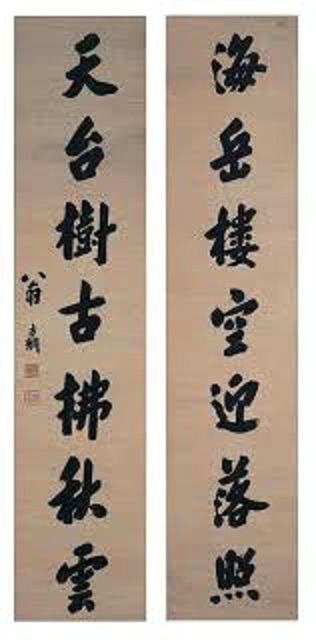 海岳樓空迎落照
天台樹古拂秋雲
翁方綱